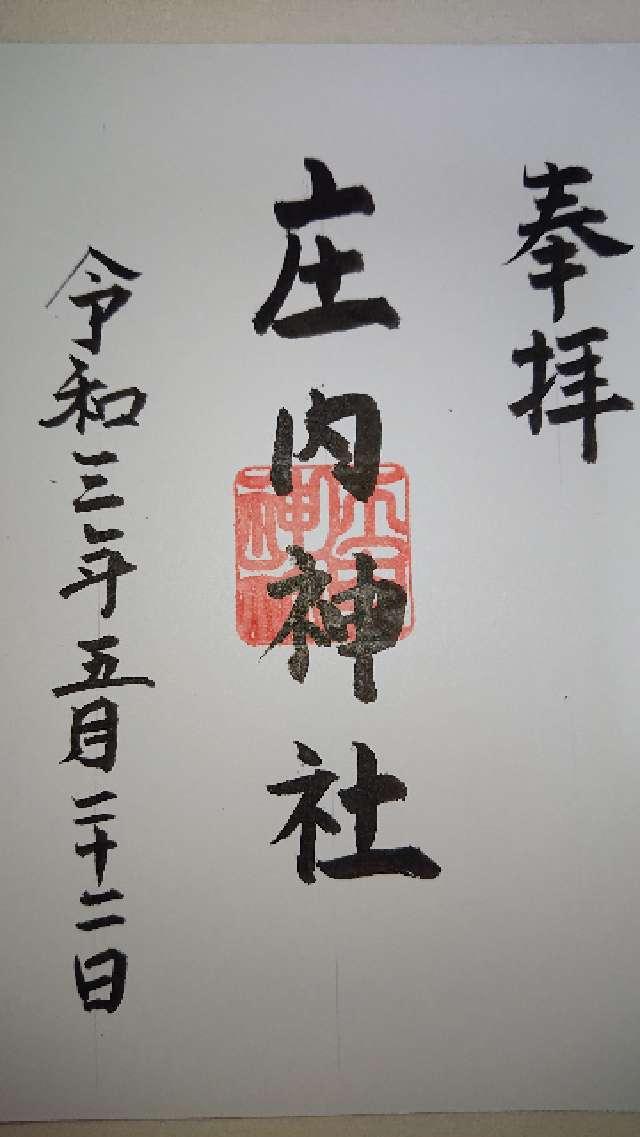 奉拝
庄内神社
令和三年五月二十二日